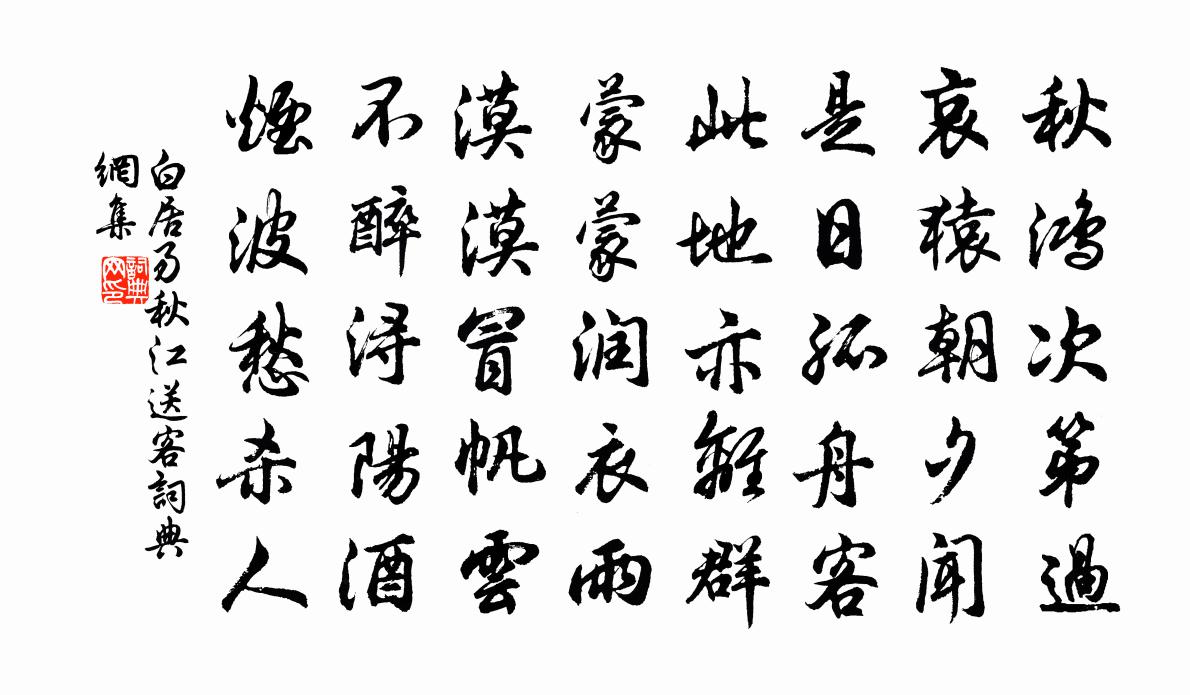 秋鸿次第過
哀猿朝夕闻
是日孤舟客
此地亦離群
蒙蒙润衣雨
漠漠冒帆雲
不醉浔陽酒
煙波愁杀人
白居易秋江送客詞典
網集
詞典
网印